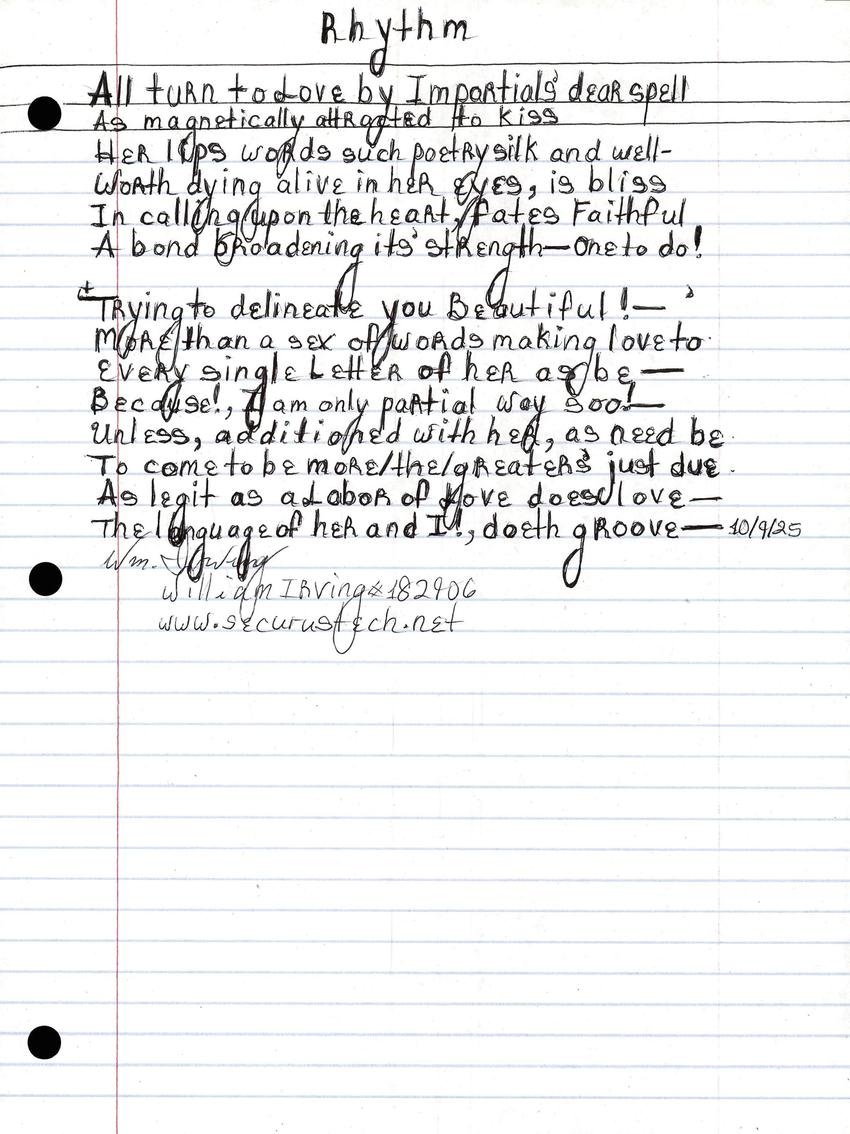 Rhythm
All turn to Love by Impartials' dear spell
As magnetically attracted to kiss
Her lips words such poetry silk and well-
Worth dying alive in her eyes, is bliss
In calling upon the heart, fates Faithful
A bond broadening its' strength—one to do!
Trying to delineate you Beautiful!—
More than a sex of words making love to
Every single Letter of her as be—
Because!, I am only partial way soo!—
Unless, additioned with her, as need be
To come to be more/the/greaters' just due.
As legit as a Labor of Love does love—
The language of her and I!, doeth groove— 10/9/25
Wm. Irving
William Irving #182906
www.securustech.net